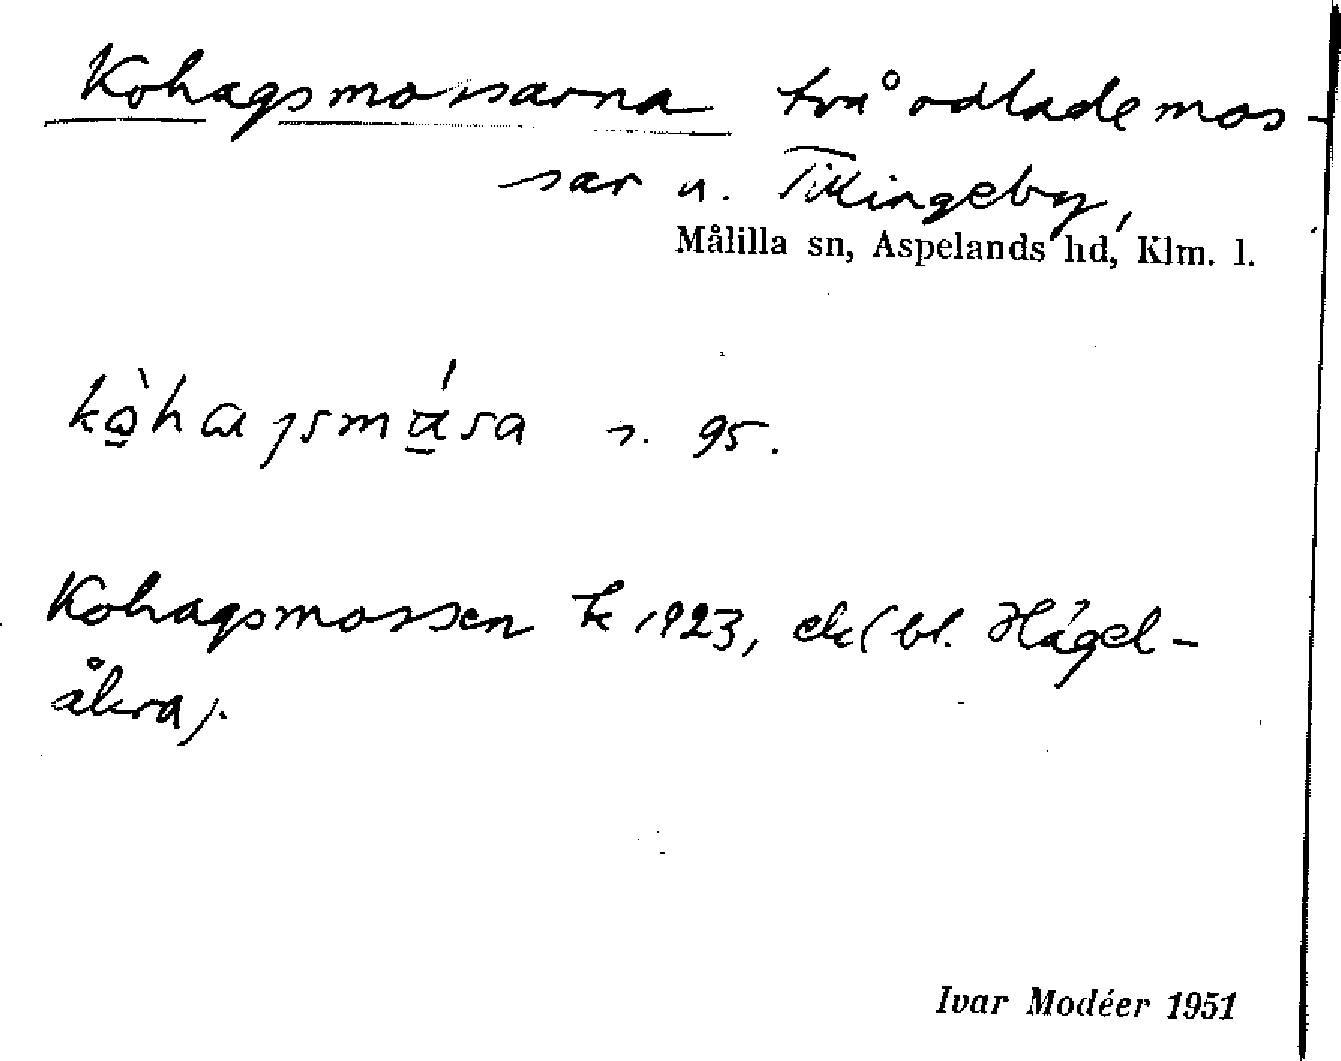 Kohagsmossarna två odlade mos-
sar u. Tikingeby,
Målilla sn, Aspelands hd, Klm. l.
s. 95.
Kohagsmossen k 1923, ek (bl. Hagel-
åkra).
Ivar Modéer 1951